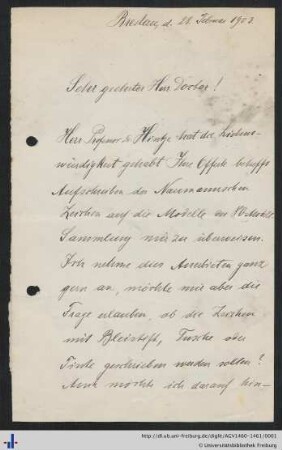 Breslau, d. 28. Februar 1903.
Sehr geehrter Herr Doctor!
Herr Professor Dr Hintze hat die Liebens-
würdigkeit gehabt Ihre Offerte betreffs
Aufschreiben der Naumannschen
Zeichen auf die Modelle der
Sammlung mir zu überweisen.
Ich nehme dies Anerbieten ganz
gern an, möchte mir aber die
Frage erlauben, ob die Zeichen
mit Bleistift, Tusche oder
Tinte geschrieben werden sollen?
Auch möchte ich darauf hin-
http://dl.ub.uni-freiburg.de/diglit/AGV1460-1461/0001
© Universitätsbibliothek Freiburg